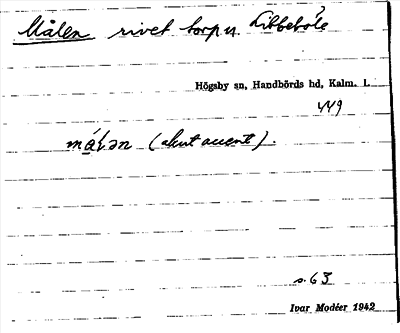 Målen rivet torp u. Libbehåle
Högsby sn, Handbörds hd, Kalm. l.
449
(akut accent).
s. 63
Ivar Modéer 1942